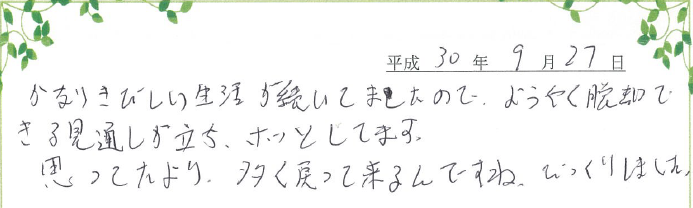 平成 30 年 9 月 27 日
かなりきびしい生活が続いてましたので、ようやく脱却で
きる見通しが立ち、ホッとしてます。
思ってたより、多く戻って来るんですね。びっくりしました。